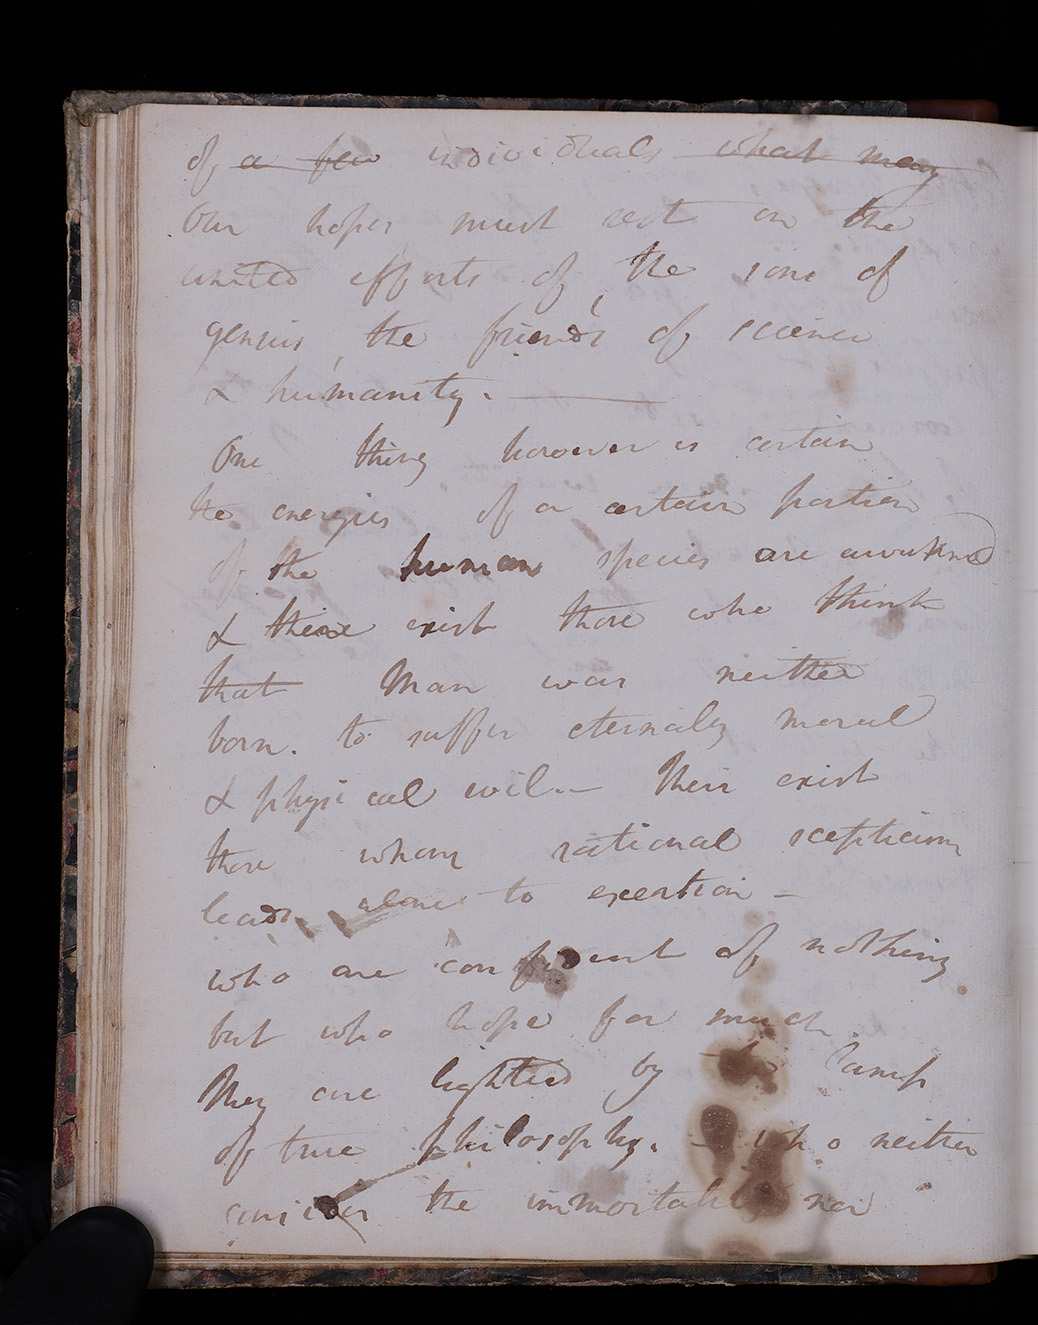 of a few individuals what may
Our hopes must rest on the
united efforts of the sons of
genius, the friends of science
& humanity. —
One thing however is certain
the energies of a certain portion
of the human species are awakened
& there exist those who think
that Man was neither
born. to suffer eternaly moral
& physical evil. — Their exist
those whom rational scepticism
leads alone to exertion —
who are confident of nothing
but who hope for much.
They are lighted by lamp
of true philosophy. — who neither
consider the immortality nor